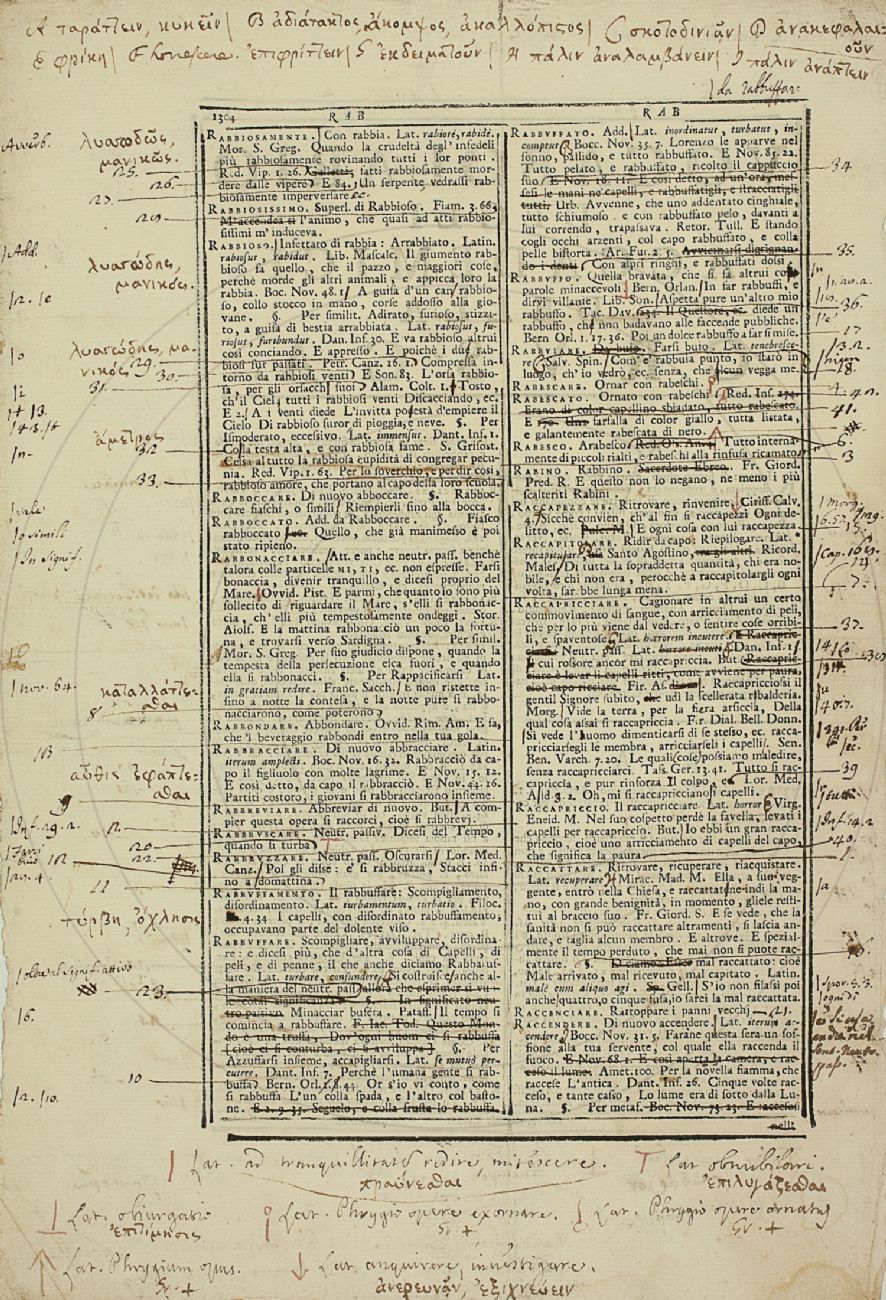 A ταράττειν, κυκεῖν B ἀδιάτακτος, ἄκομψος, ἀκαλλόπιστος C σκοτοδινιᾷν D ἀνακεφαλαι-
οῦν
E φρίκη F horrescere. ἐπιφρίττειν G ἐκδειματοῦν H πάλιν ἀναλαμβάνειν I πάλιν ἀνάπτειν
da rabbuffare
1304 RAB
RABBIOSAMENTE. Con rabbia. Lat. rabiose, rabide.
Mor. S. Greg. Quando la crudeltà degl'infedeli
più rabbiosamente rovinando tutti i lor ponti.
Red. Vip. 1. 26. Galletti, fatti rabbiosamente mor-
dere dalle vipere. E 84. Un serpente vedrassi rab-
biosamente imperversare ec.
RABBIOSISSIMO. Superl. di Rabbioso. Fiam. 3. 66.
M'accondea sì l'animo, che quasi ad atti rabbio-
sissimi m'induceva.
RABBIOSO. Infettato di rabbia: Arrabbiato. Latin.
rabiosus, rabidus. Lib. Mascalc. Il giumento rab-
bioso fa quello, che il pazzo, e maggiori cose,
perchè morde gli altri animali, e appicca loro la
rabbia. Boc. Nov. 48. 1. A guisa d'un can rabbio-
so, collo stocco in mano, corse addosso alla gio-
vane. §. Per similit. Adirato, furioso, stizzi-
to, a guisa di bestia arrabbiata. Lat. rabiosus, fu-
riosus, furibundus. Dan. Inf. 30. E va rabbioso altrui
così conciando. E appresso. E poichè i due rab-
biosi fur passati. Petr. Canz. 16. 1. Compressa in-
torno da rabbiosi venti. E Son. 83. L'orsa rabbio-
sa, per gli orsacchi suoi. Alam. Colt. 1. Tosto,
ch'il Ciel tutti i rabbiosi venti Discacciando, ec.
E 2. A i venti diede L'invitta podestà d'empiere il
Cielo Di rabbioso furor di pioggia, e neve. §. Per
Ismoderato, eccessivo. Lat. immensus. Dant. Inf. 1.
Colla testa alta, e con rabbiosa fame. S. Grisost.
Cessa al tutto la rabbiosa cupidità di congregar pecu-
nia. Red. Vip. 1. 63. Per lo soverchio, e per dir così,
rabbioso amore, che portano al capo della loro scuola.
RABBOCCARE. Di nuovo abboccare. §. Rabboc-
care fiaschi, o simili. Riempierli sino alla bocca.
RABBOCCATO. Add. da Rabboccare. §. Fiasco
rabboccato. Quello, che già manimesso è poi
stato ripieno.
RABBONACCIARE. Att. e anche neutr. pass. benchè
talora colle particelle MI, TI, ec. non espresse. Farsi
bonaccia, divenir tranquillo, e dicesi proprio del
Mare. Ovvid. Pist. E parmi, che quanto io sono più
sollecito di riguardare il Mare, s'elli si rabbonac-
cia, ch'elli più tempestosamente ondeggi. Stor.
Aiolf. E la mattina rabbonacciò un poco la fortu-
na, e trovarsi verso Sardigna. §. Per simil.
Mor. S. Greg. Per suo giudicio dispone, quando la
tempesta della persecuzione esca fuori, e quando
ella si rabbonacci. §. Per Rappacificarsi. Lat.
in gratiam redire. Franc. Sacch. E non ristette in-
sino a notte la contesa, e la notte pure si rabbo-
nacciarono, come poterono.
RABBONDARE. Abbondare. Ovvid. Rim. Am. E fa,
che 'l beveraggio rabbondi entro nella tua gola.
RABBRACCIARE. Di nuovo abbracciare. Latin.
iterum amplecti. Boc. Nov. 16. 32. Rabbracciò da ca-
po il figliuolo con molte lagrime. E Nov. 15. 12.
E così detto, da capo il rabbracciò. E Nov. 44. 16.
Partiti costoro, i giovani si rabbracciarono insieme.
RABBREVIARE. Abbreviar di nuovo. But. A com-
pier questa opera si raccorci, cioè si rabbrevi.
RABBRUSCARE. Neutr. passiv. Dicesi del Tempo,
quando si turba.
RABBRUZZARE. Neutr. pass. Oscurarsi. Lor. Med.
Canz. Poi gli disse: e' si rabbruzza, Stacci insi-
no a domattina.
RABBUFFAMENTO. Il rabbuffare: Scompigliamento,
disordinamento. Lat. turbamentum, turbatio. Filoc.
4. 34 I capelli, con disordinato rabbuffamento,
occupavano parte del dolente viso.
RABBUFFARE. Scompigliare, avviluppare, disordina-
re: e dicesi più, che d'altra cosa di Capelli, di
peli, e di penne, il che anche diciamo Rabbaruf-
fare. Lat. turbare, confundere. Si costruisce anche al-
la maniera del neutr. pass. allora che esprimer si vuo-
le total significanza. §. In significato neu-
tro passivo. Minacciar bufera. Pataff. Il tempo si
comincia a rabbuffare. F. Iac. Tod. Questo Mon-
do è una truffa, Dov'ogni buom ci si rabbuffa
[cioè ci si conturba, ci si avviluppa] §. Per
Azzuffarsi insieme, accapigliarsi. Lat. se mutuo per-
cutere. Dant. Inf. 7. Perchè l'umana gente si rab-
buffa. Bern. Orl. 1. 8. 44. Or s'io vi conto, come
si rabbuffa L'un colla spada, e l'altro col basto-
ne. E 2. 9. 35. Seguelo, e colla frusta lo rabbuffa.
RAB
RABBUFFATO. Add. Lat. inordinatus, turbatus, in-
comptus. Bocc. Nov. 35. 7. Lorenzo le apparve nel
sonno, pallido, e tutto rabbuffato. E Nov. 85. 22.
Tutto pelato, e rabbuffato, ricolto il cappuccio
suo. E Nov. 18. 11. E così detto, ad un'ora, mes-
sesi le mani ne' capelli, e rabbuffatigli, e stracciatigli
tutti. Urb. Avvenne, che uno addentato cinghiale,
tutto schiumoso, e con rabbuffato pelo, davanti a
lui correndo, trapassava. Retor. Tull. E stando
cogli occhi arzenti, col capo rabbuffato, e colla
pelle bistorta. Ar. Fur. 2. 5. Avvicinarsi digrignan-
do i denti. Con aspri ringhi, e rabbuffati dossi.
RABBUFFO. Quella bravata, che si fa altrui con
parole minaccevoli. Bern. Orlan. In far rabbuffi, e
dirvi villanie. Lib. Son. Aspetta pure un'altro mio
rabbuffo. Tac. Dav. Il Questore, ec. diede un
rabbuffo, che non badavano alle faccende pubbliche.
Bern Orl. 1. 17. 36. Poi un dolce rabbuffo a far si mise.
RABBUIARE. Da buio. Farsi buio. Lat. tenebresce-
re. Salv. Spin. Com'e' rabbuia punto, io starò in
luogo, ch'io vedrò, ec. senza, che alcun vegga me.
RABESCARE. Ornar con rabeschi.
RABESCATO. Ornato con rabeschi. Red. Ins. 174.
Erano di color capellino sbiadato, tutto rabescato.
E 170. Una farfalla di color giallo, tutta listata,
e galantemente rabescata di nero.
RABESCO. Arabesco. Red. O's. An. Tutto interna-
mente di piccoli rialti, e rabeschi alla rinfusa ricamato.
RABINO. Rabbino. Sacerdote Ebreo. Fr. Giord.
Pred. R. E questo non lo negano, ne meno i più
scalteriti Rabini.
RACCAPEZZARE. Ritrovare, rinvenire. Ciriff. Calv.
4. Sicchè convien, ch'al fin si raccapezzi Ogni de-
litto, ec. Pulc. M. E ogni cosa con lui raccapezza.
RACCAPITOLARE. Ridir da capo: Riepilogare. Lat.
recapitulare. Santo Agostino, tra gli altri. Ricord.
Males. Di tutta la sopraddetta quantità, chi era no-
bile, e chi non era, perocchè a raccapitolargli ogni
volta, sarebbe lunga mena.
RACCAPRICCIARE. Cagionare in altrui un certo
commovimento di sangue, con arricciamento di peli,
che per lo più viene dal vedere, o sentire cose orribi-
li, e spaventose. Lat. horrorem incutere. E Raccapric-
ciarsi. Neutr. pass. Lat. horrore incuti. Dan. Inf.
E cui rossore ancor mi raccapriccia. But. Raccapric-
ciare è levar li capelli ritti, come avviene per paura,
cioè capo ricciare. Fir. As. Raccapricciosi il
gentil Signore subito, che udì la scellerata ribalderia.
Morg. Vide la terra, per la fiera arsiccia, Della
qual cosa assai si raccapriccia. Fr. Dial. Bell. Donn.
Si vede l'huomo dimenticarsi di se stesso, ec. racca-
pricciarsegli le membra, arricciarseli i capelli. Sen.
Ben. Varch. 7. 20. Le quali cose possiamo maledire,
senza raccapricciarci. Tass. Ger. 13. 41. Tutto si rac-
capriccia, e pur rinforza Il colpo, e Lor. Med.
Oh, mi si raccapricciano i capelli.
RACCAPRICCIO. Il raccapricciare. Lat. horror. Virg.
Eneid. M. Nel suo cospetto perdè la favella, levati i
capelli per raccapriccio. But. Io ebbi un gran racca-
priccio, cioè uno arricciamento di capelli del capo,
che significa la paura.
RACCATTARE. Ritrovare, ricuperare, riacquistare.
Lat. recuperare. Mirac. Mad. M. Ella, a suo veg-
gente, entrò nella Chiesa, e raccattatene indi la ma-
no, con grande benignità, in momento, gliele resti-
tuì al braccio suo. Fr. Giord. S. E se vede, che la
sanità non si può raccattare altramenti, si lascia an-
dare, e taglia alcun membro. E altrove. E spezial-
mente il tempo perduto, che mai non si puote rac-
cattare. §. Diciamo Esser mal raccattato: cioè
Male arrivato, mal ricevuto, mal capitato. Latin.
male cum aliquo agi. Sp. Gell. S'io non filassi poi
anche quattro, o cinque fusa, io sarei la mal raccattata.
RACCENCIARE. Rattoppare i panni vecchi.
RACCENDERE. Di nuovo accendere. Lat. iterum ac-
cendere. Bocc. Nov. 31. 5. Faràne questa sera un sof-
fione alla tua servente, col quale ella raccenda il
fuoco. E Nov. 68. 1. E così aperta la camera, e rac-
ceso il lume. Amet. 100. Per la novella fiamma, che
raccese L'antica. Dant. Inf. 26. Cinque volte rac-
ceso, e tante casso, Lo lume era di sotto dalla Lu-
na. §. Per metaf. Boc. Nov. 73. 23. E raccesosi
nell'
λυσσωδῶς,
μανικῶς.
25.
26.
27.
Add.
λυσσώδης,
μανικός.
λυσσώδης, μα-
νικός.
29.
30.
31.
ἄμετρος
32
33.
o simili
In signif.
nov. 64.
καταλλάττε-
σθαι
8
αὖθις ἐφάπτε-
σθαι
9
2.
20
22.
12
11
τύρβη, ὄχλησις
23.
16.
10
34
35.
36.
17
18.
41.
6.
3
15.
7.
37.
39
40.
1.
21.
Lat. ad tranquillitatem redire, mitescere.
πραΰνεσθαι
Lat. obnubilari.
ἐπιλυγάζεσθαι
Lat. obiurgatio
ἐπιτίμησις
Lat. Phrygio opere exornare.
Gr. +
Lat. Phrygio opere ornatus
Gr. +
Lat. Phrygium opus.
Gr. +
Lat. anquirere, investigare.
ἀνερευνᾷν, ἐξιχνεύειν